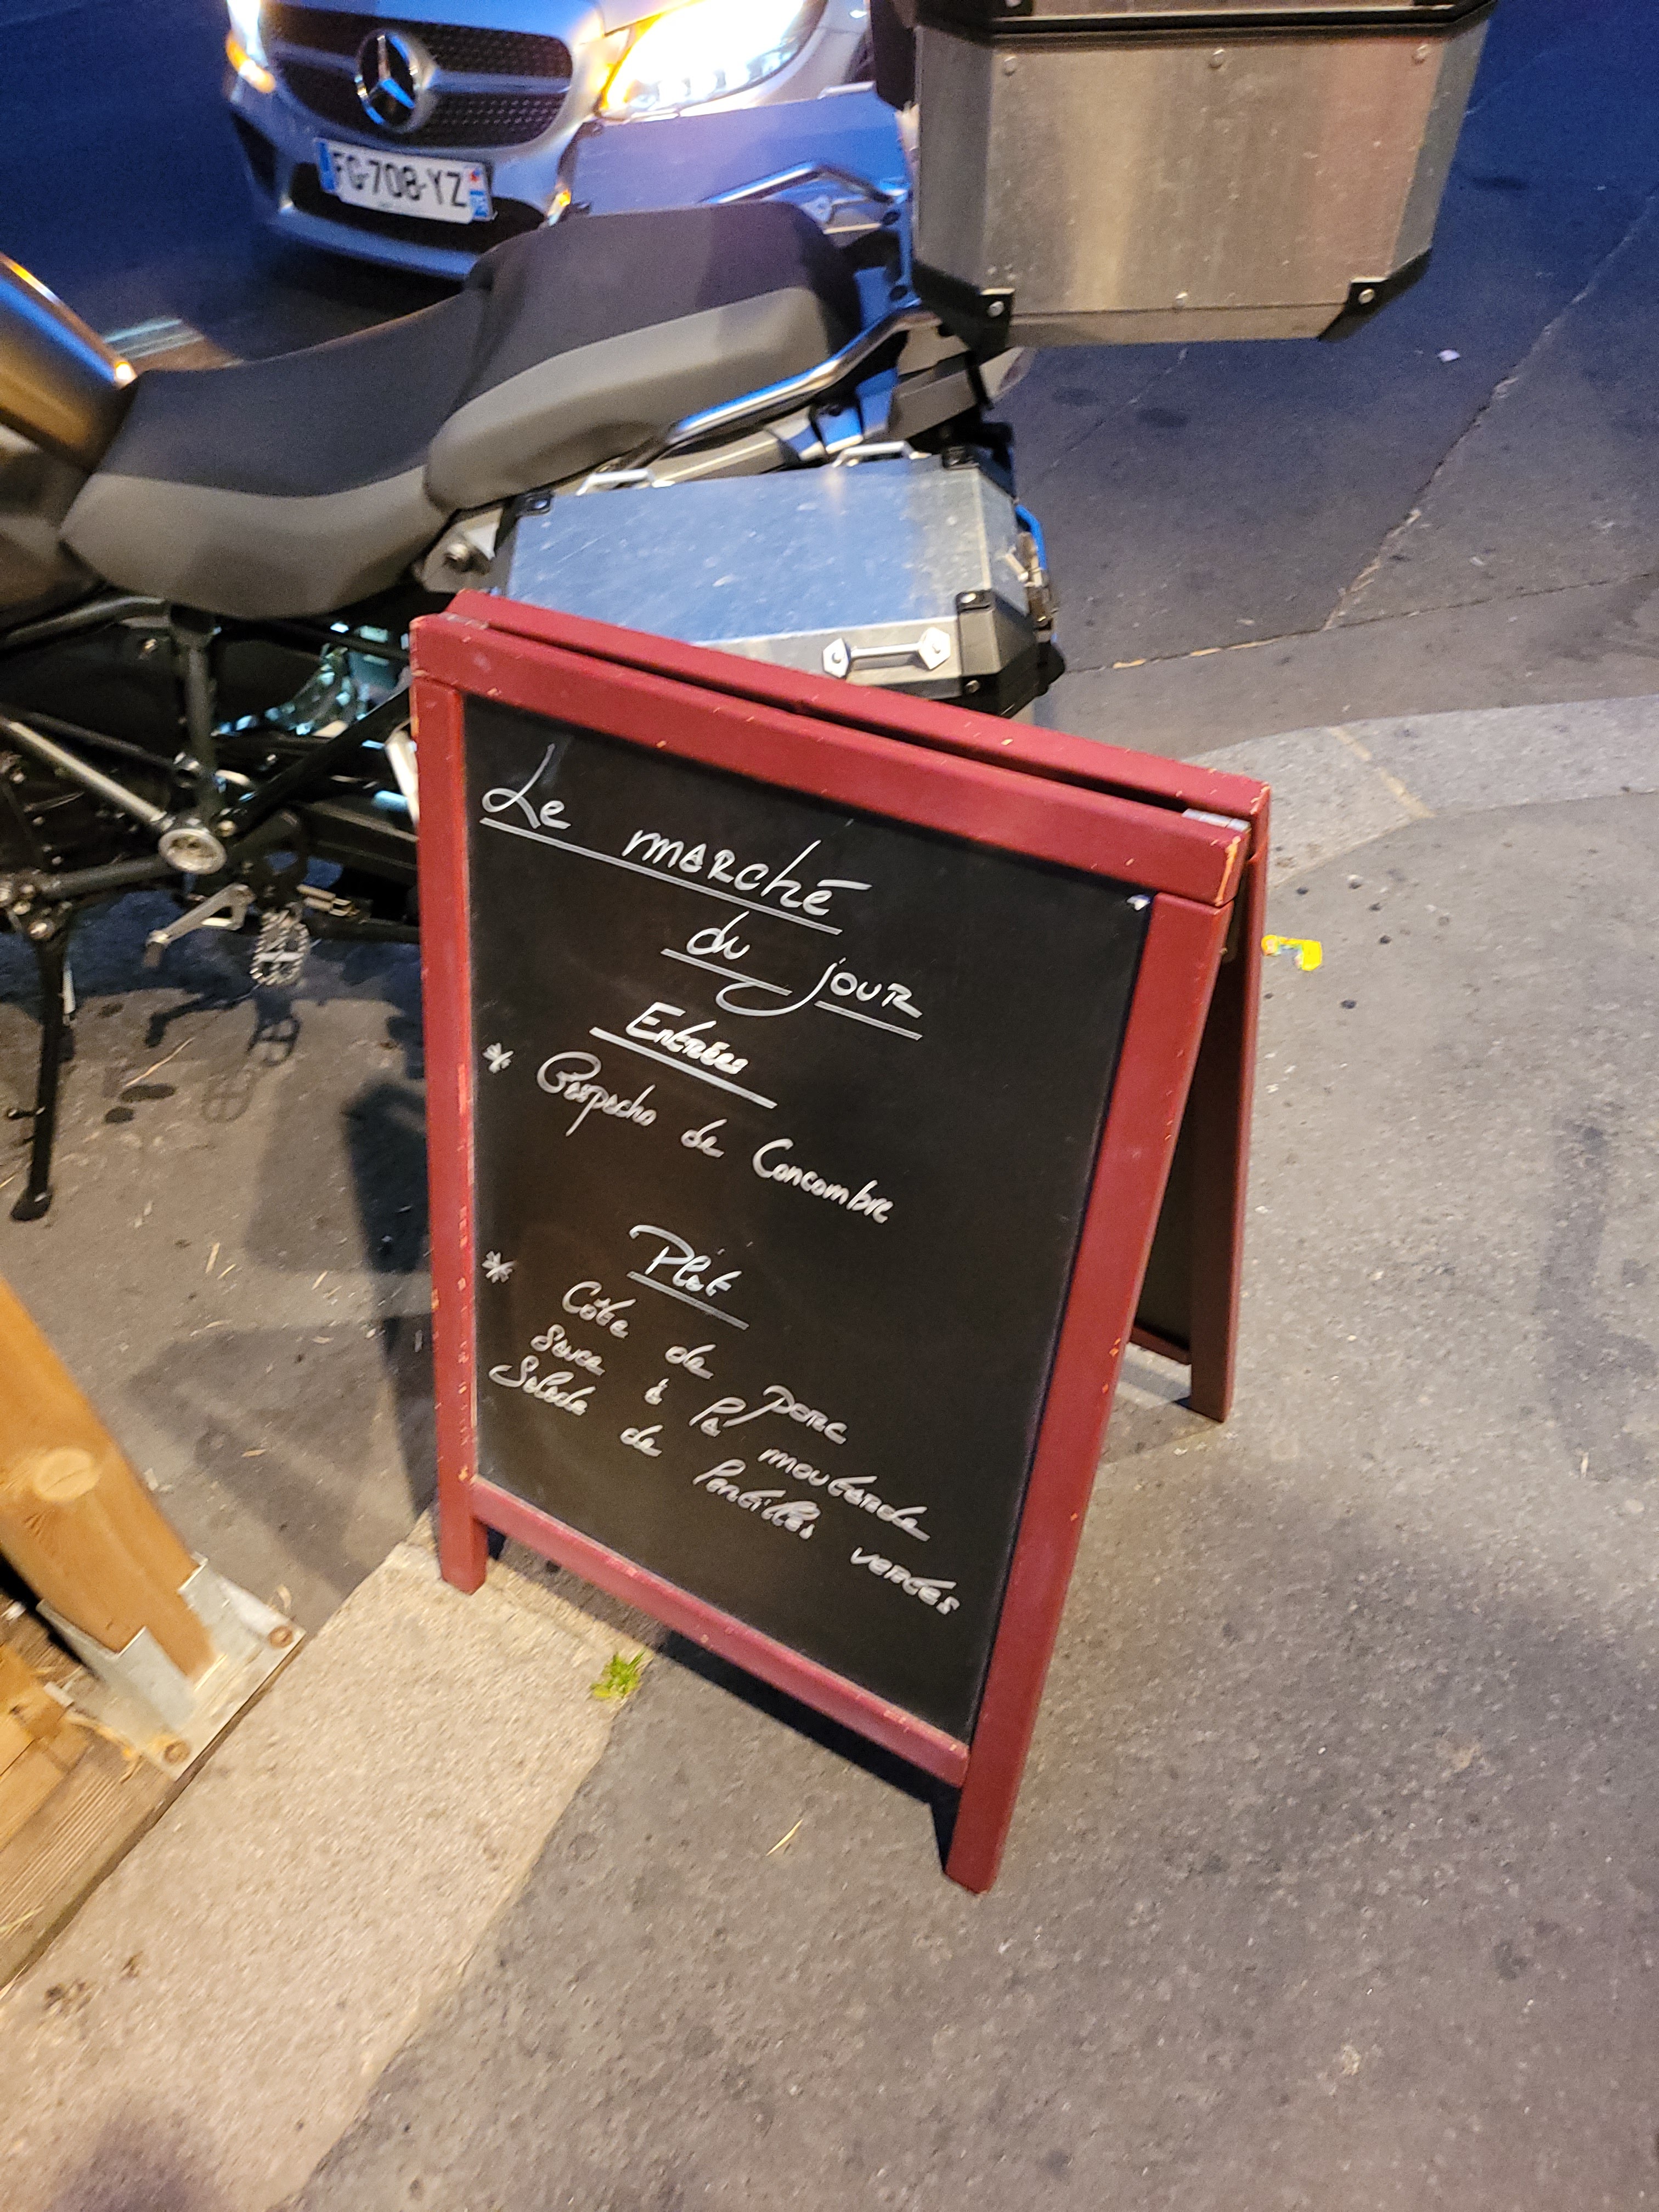 FG-708-YZ
Le marché
du jour
Entrées
* Gaspacho de Concombre
Plat
* Côte de porc
Sauce à la moutarde
Salade de lentilles vertes